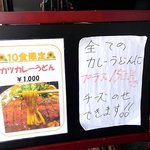 10食限定
カツカレーうどん
¥1,000
全ての
カレーうどんに
プラス150円で
チーズのせ
できます!!